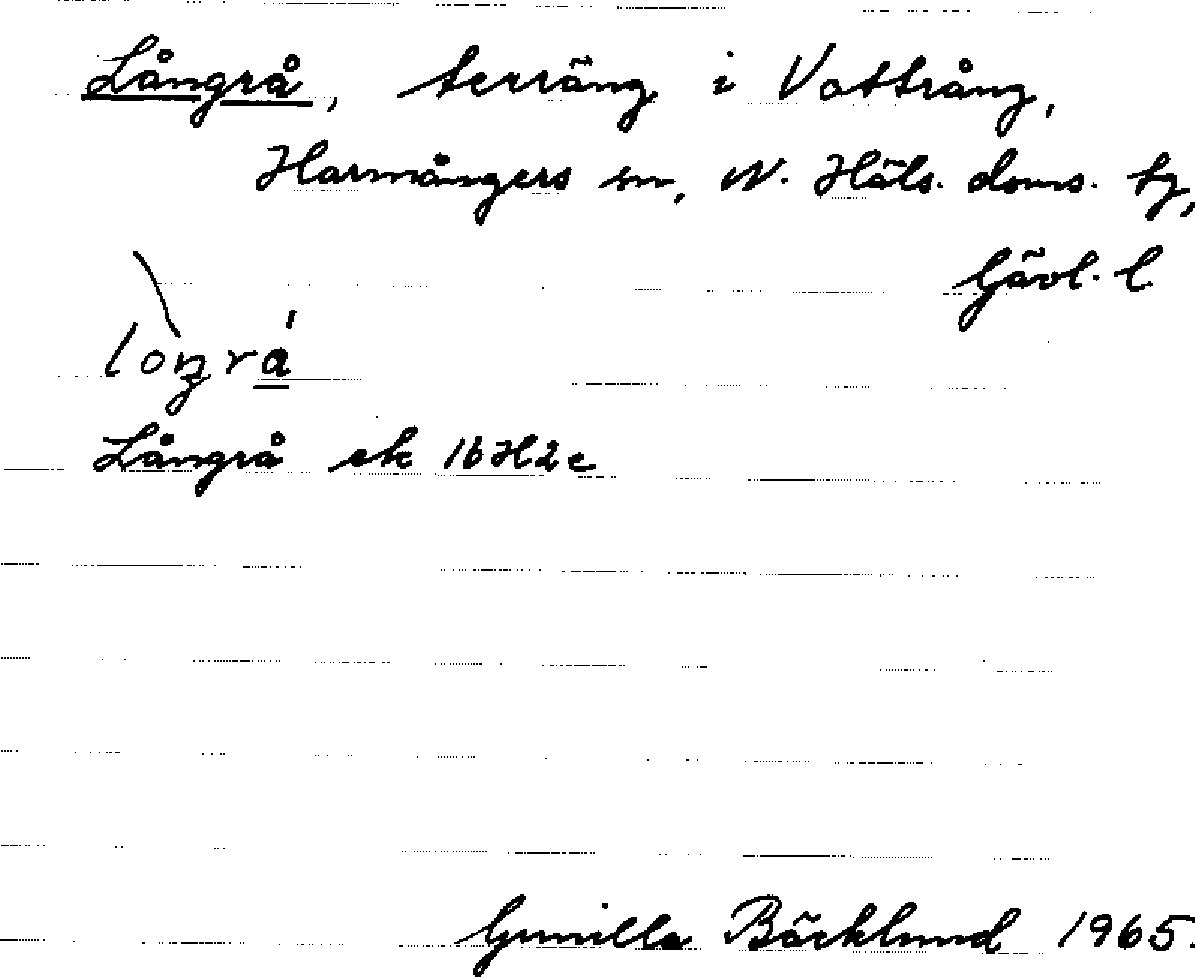 Långrå, terräng i Vattrång,
Harmångers sn, N. Häls. doms. tg,
Gävl. l
Långrå ek 16H2c
Gunilla Bäcklund 1965.